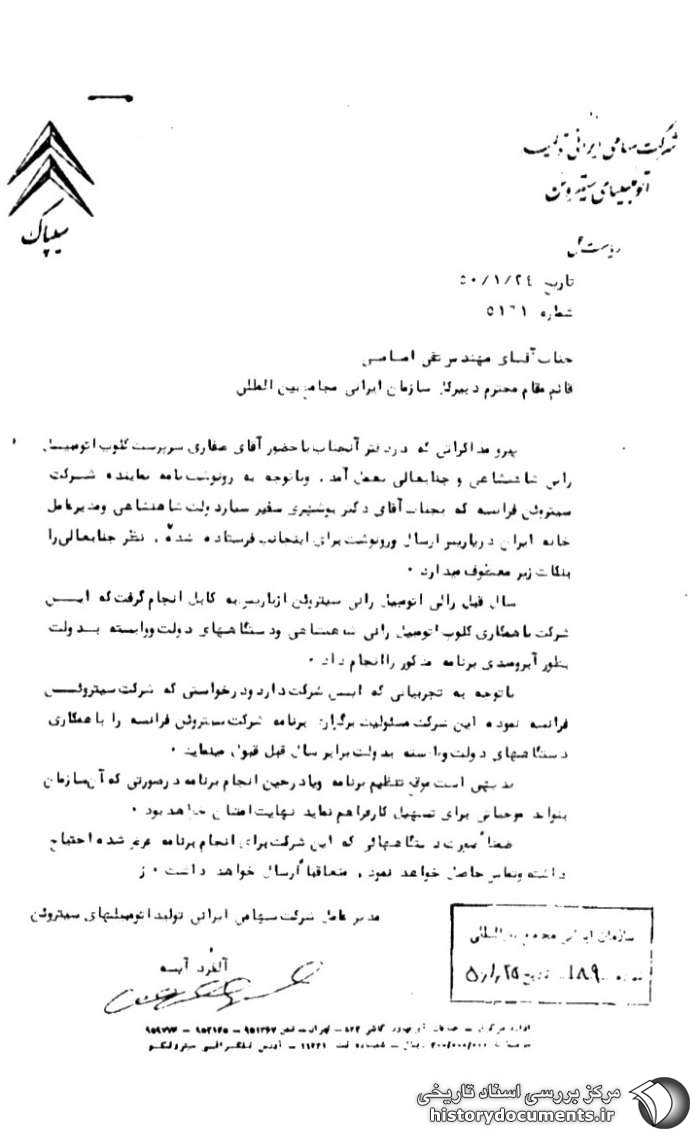 شرکت سهامی ایرانی تولید
اتومبیلهای سیتروئن
سیپاک
ریاست کل
تاریخ ۵۰/۱/۲۴
شماره ۵۱۶۱
جناب آقای مهندس تقی امامی
قائم مقام محترم دبیرکل سازمان ایرانی مجامع بین المللی
پیرو مذاکراتی که در دفتر آنجناب با حضور آقای صفاری سرپرست کلوب اتومبیل
رانی شاهنشاهی و جنابعالی بعمل آمد ، و با توجه به رونوشت نامه نماینده شرکت
سیتروئن فرانسه که بجناب آقای دکتر پوشهری سفیر سیار دولت شاهنشاهی و مدیرعامل
خانه ایران در پاریس ارسال و رونوشت برای اینجانب فرستاده شده ، نظر جنابعالی را
بنکات زیر معطوف میدارد ۰
سال قبل رالی اتومبیل رانی سیتروئن از پاریس به کابل انجام گرفت که ایـــن
شرکت با همکاری کلوب اتومبیل رانی شاهنشاهی و دستگاههای دولت و وابسته بدولت
بطور آبرومندی برنامه مذکور را انجام داد ۰
با توجه به تجربیاتی که ایـن شرکت دارد و درخواستی که شرکت سیتروئـــن
فرانسه نموده این شرکت مسئولیت برگزاری برنامه شرکت سیتروئن فرانسه را با همکاری
دستگاههای دولت و وابسته بدولت برابر سال قبل قبول مینماید ۰
بدیهی است موقع تنظیم برنامه و یا در حین انجام برنامه در صورتی که آن سازمان
بتواند موجباتی برای تسهیل کار فراهم نماید نهایت امتنان خواهد بود ۰
ضمناً صورت دستگاههائی که این شرکت برای انجام برنامه عرض شده احتیاج
داشته و تماس حاصل خواهد نمود ، متعاقباً ارسال خواهد داشت ۰ ز
مدیر عامل شرکت سهامی ایرانی تولید اتومبیلهای سیتروئن
آلفرد آبسه
سازمان ایرانی مجامع بین‌المللی
شماره ۱۸۹۰ تاریخ ۵۰/۱/۲۵
اداره مرکزی ـ خیابان ۸۲۲ ـ تهران ـ تلفن ۹۵۱۲۶۷ ـ ۹۵۲۱۲۵ ـ ۹۵۹۷۷۲
سرمایه ۳۰۰/۰۰۰/۰۰۰ ریال ـ شماره ثبت ۱۱۲۲۱ ـ آدرس تلگرافی سیترولکو
مرکز بررسی اسناد تاریخی
historydocuments.ir